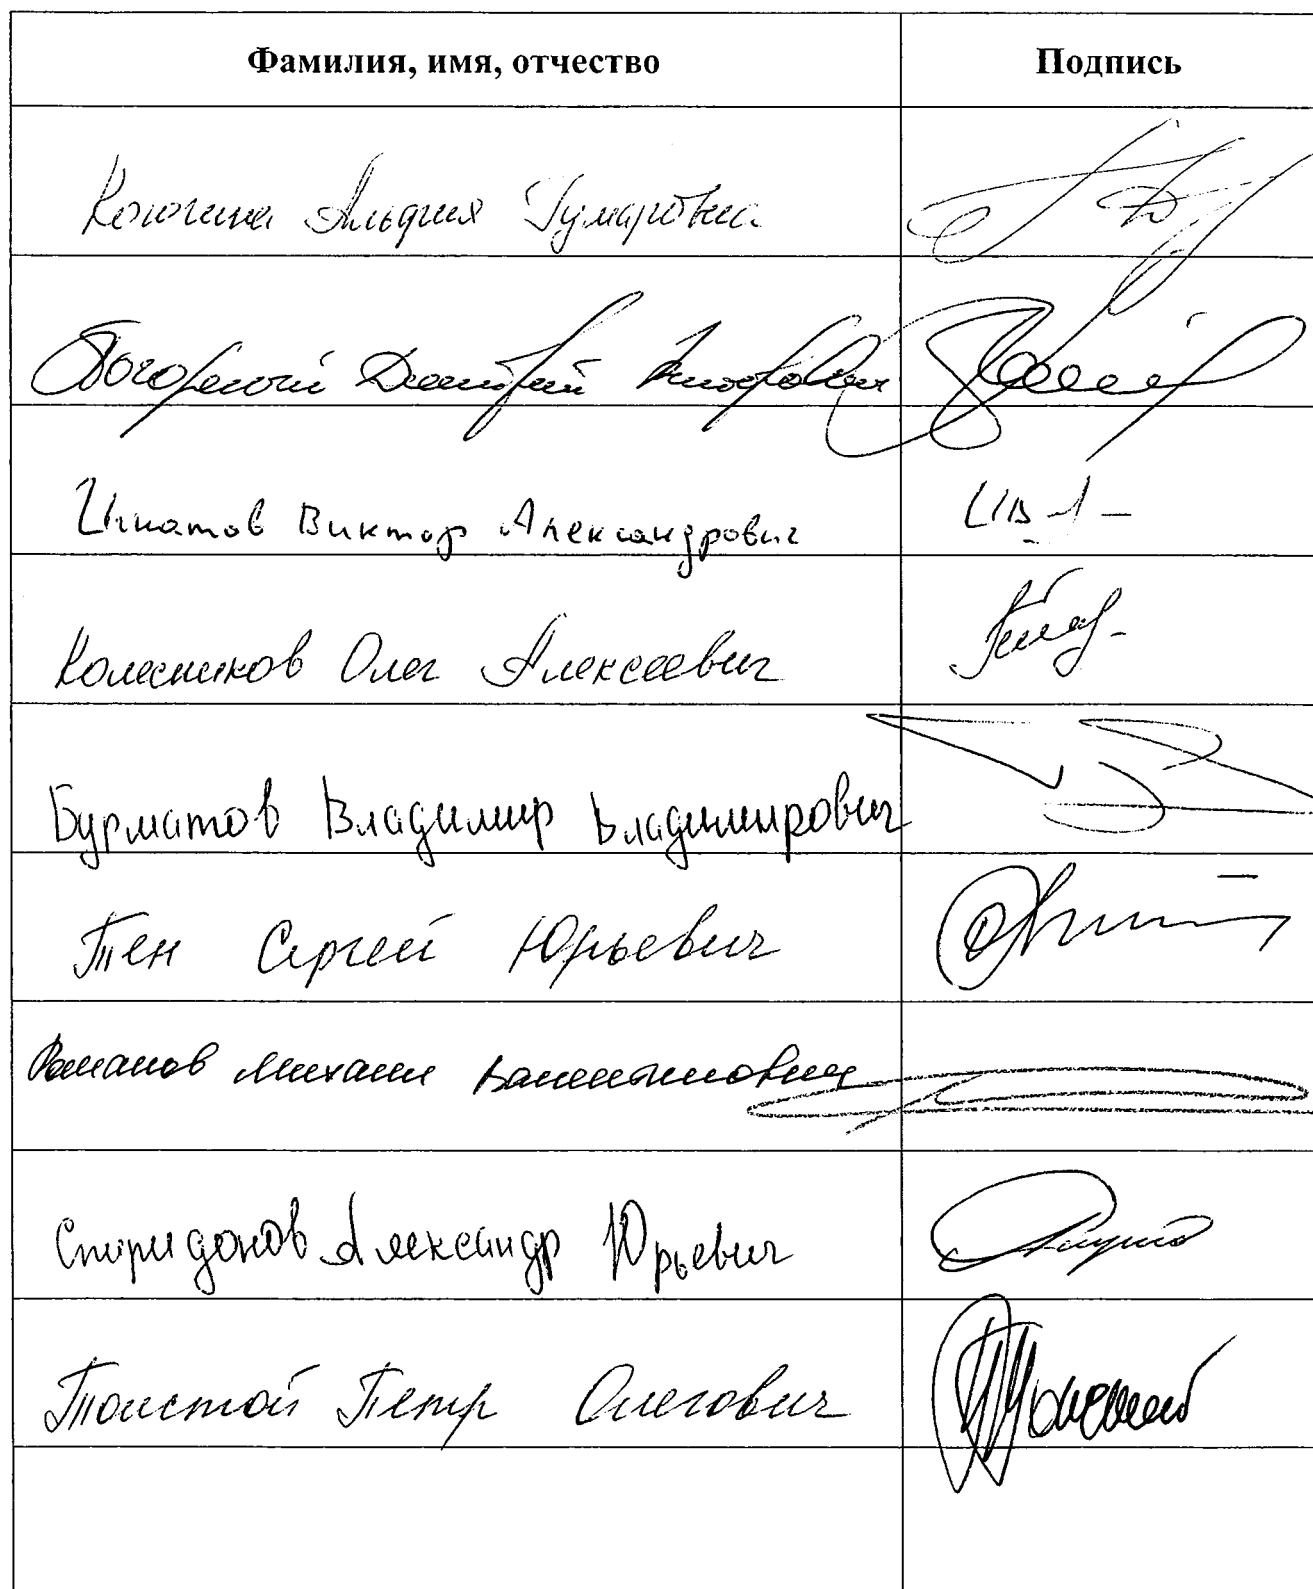 Фамилия, имя, отчество Подпись
Когогина Альфия Гумаровна
Погорелый Дмитрий Викторович
Игнатов Виктор Александрович
Колесников Олег Алексеевич
Бурматов Владимир Владимирович
Тен Сергей Юрьевич
Романов Михаил Валентинович
Спиридонов Александр Юрьевич
Толстой Петр Олегович